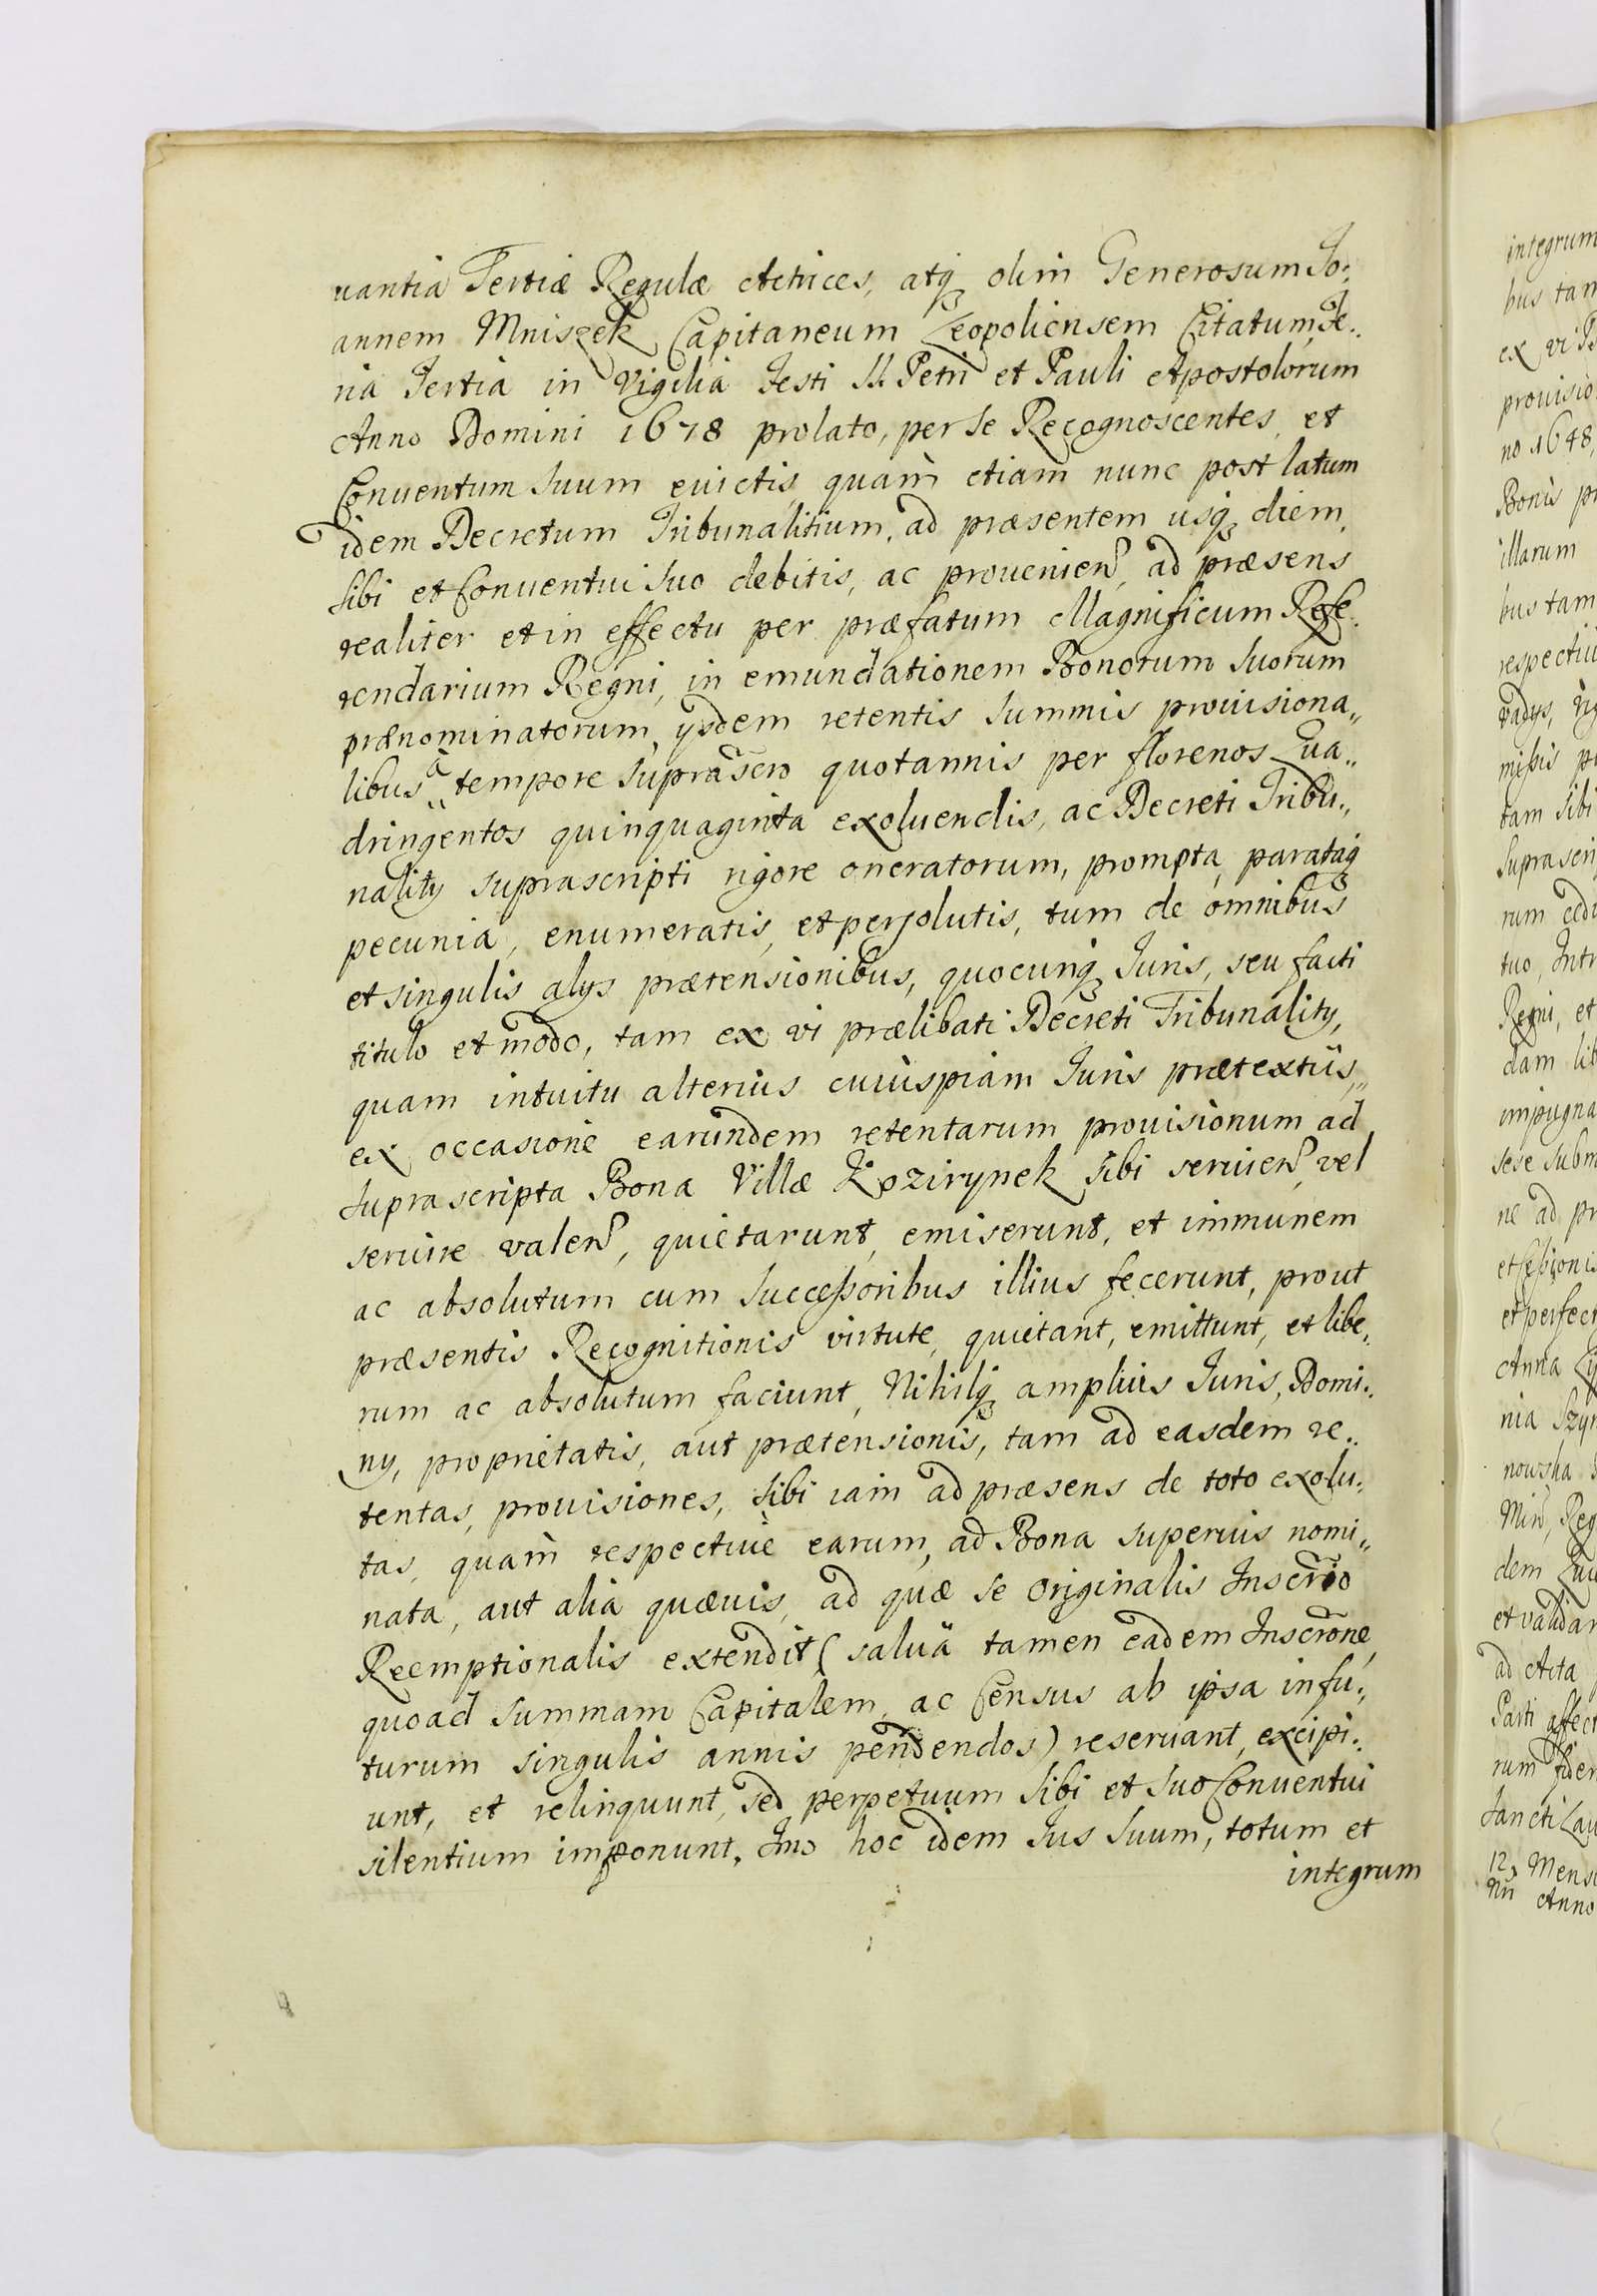 uantia Tertiæ Regulæ Actrices, atq₃ olim Generosum Jo:,
annem Mniszek Capitaneum Leopoliensem Citatum, Fe:,
ria Tertia in Vigilia Festi SS. Petri et Pauli Apostolorum
Anno Domini 1678 prolato, per se Recognoscentes, et
Conuentum suum euictis, quàm etiam nunc post latum
idem Decretum Tribunalitium, ad præsentem usq₃ diem,
sibi et Conuentui suo debitis, ac prouenien, ad præsens
realiter et in effectu per præfatum Magnificum Refe:
rendarium Regni, in emundationem Bonorum suorum
prænominatorum, ijsdem retentis summis prouisiona„
libus à tempore suprascro quotannis per florenos Qua„
dringentos quinquaginta exoluendis, ac Decreti Tribu:,
nalitij suprascripti rigore oneratorum, prompta, parataq₃
pecunia, enumeratis, et persolutis, tum de omnibus
et singulis alijs prætensionibus, quocunq₃ Juris, seu facti
titulo et modo, tam ex vi prælibati Decreti Tribunalitij,
quam intuitu alterius cuiuspiam Juris prætextùs,„
ex occasione earundem retentarum prouisionum ad
suprascripta Bona Villæ Kozirynek sibi seruien, vel
seruire valen, quietarunt, emiserunt, et immunem
ac absolutum cum Successoribus illius fecerunt, prout
præsentis Recognitionis virtute, quietant, emittunt, et libe„
rum ac absolutum faciunt, Nihilq₃ amplius Juris, Domi:,
nij, proprietatis, aut prætensionis, tam ad easdem re:,
tentas, prouisiones, sibi iam ad præsens de toto exolu:,
tas, quàm respectiuè earum, ad Bona superius nomi„
nata, aut alia quæuis, ad quæ se originalis Inscrio
Reemptionalis extendit (saluâ tamen eadem Inscrone,
quoad summam Capitalem, ac Census ab ipsa in fu:,
turum singulis annis pendendos) reseruant, excipi:,
unt, et relinquunt, sed perpetuum sibi et suo Conuentui
silentium imponunt, Imo hoc idem Jus suum, totum et
integrum
integrum
bus tam
ex vi
prouisio
no 1648,
Bonis
illarum
bus tam
respectiu
vadys,
missis
tam sibi
suprascri
rum
tuo,
Regni, et
dam lib
impugna
sese subm
ne ad
et Cessionis
et perfec
Anna
nia
nowska
Min, Reg
dem
et validar
ad Acta
Parti affec
rum fiden
Sancti Lau
12. Mens
Anno